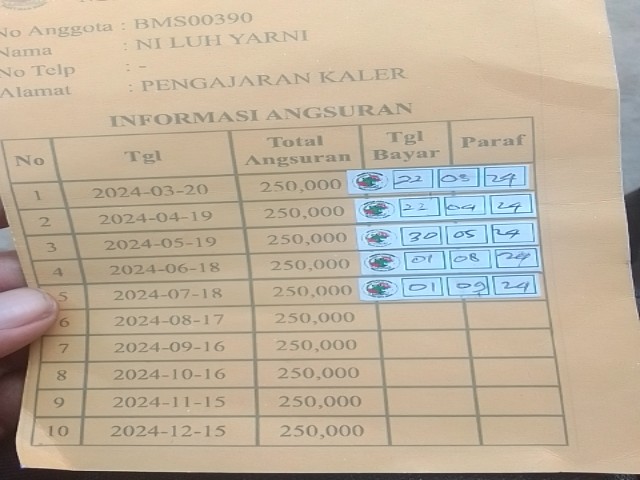 No Anggota : BMS00390
Nama : NI LUH YARNI
No Telp : -
Alamat : PENGAJARAN KALER
INFORMASI ANGSURAN
No Tgl Total Angsuran Tgl Bayar Paraf
1 2024-03-20 250,000 22 03 24
2 2024-04-19 250,000 22 04 24
3 2024-05-19 250,000 30 05 24
4 2024-06-18 250,000 01 08 24
5 2024-07-18 250,000 01 09 24
6 2024-08-17 250,000
7 2024-09-16 250,000
8 2024-10-16 250,000
9 2024-11-15 250,000
10 2024-12-15 250,000